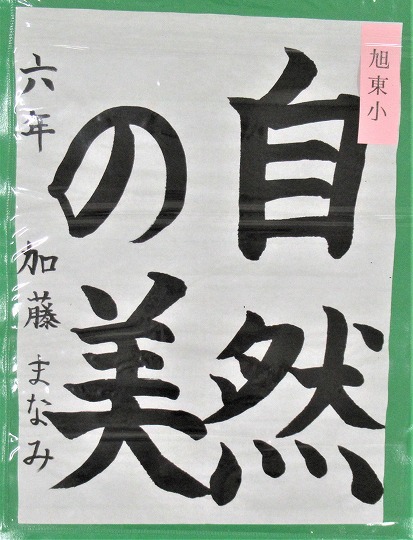 旭東小
自然
の美
六年 加藤まなみ